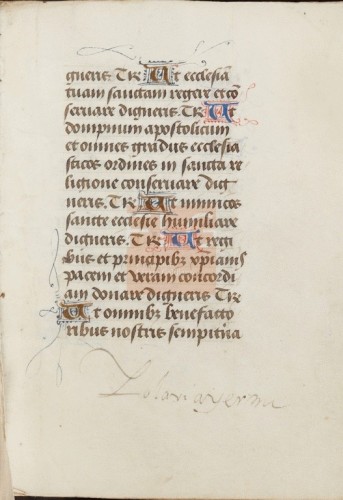 gneris. Te Ut ecclesiā
tuam sanctam regere et cō
servare digneris. Te Ut
dompnum apostolicum
et omnes gradus ecclesia
sticos ordines in sancta re
ligione conservare dig
neris. Te Ut inimicos
sancte ecclesie humiliare
digneris. Te Ut regi
bus et principibꝫ xpianis
pacem et veram concordi
am donare digneris Te
Ut omnibꝫ benefacto
ribus nostris sempit̄na